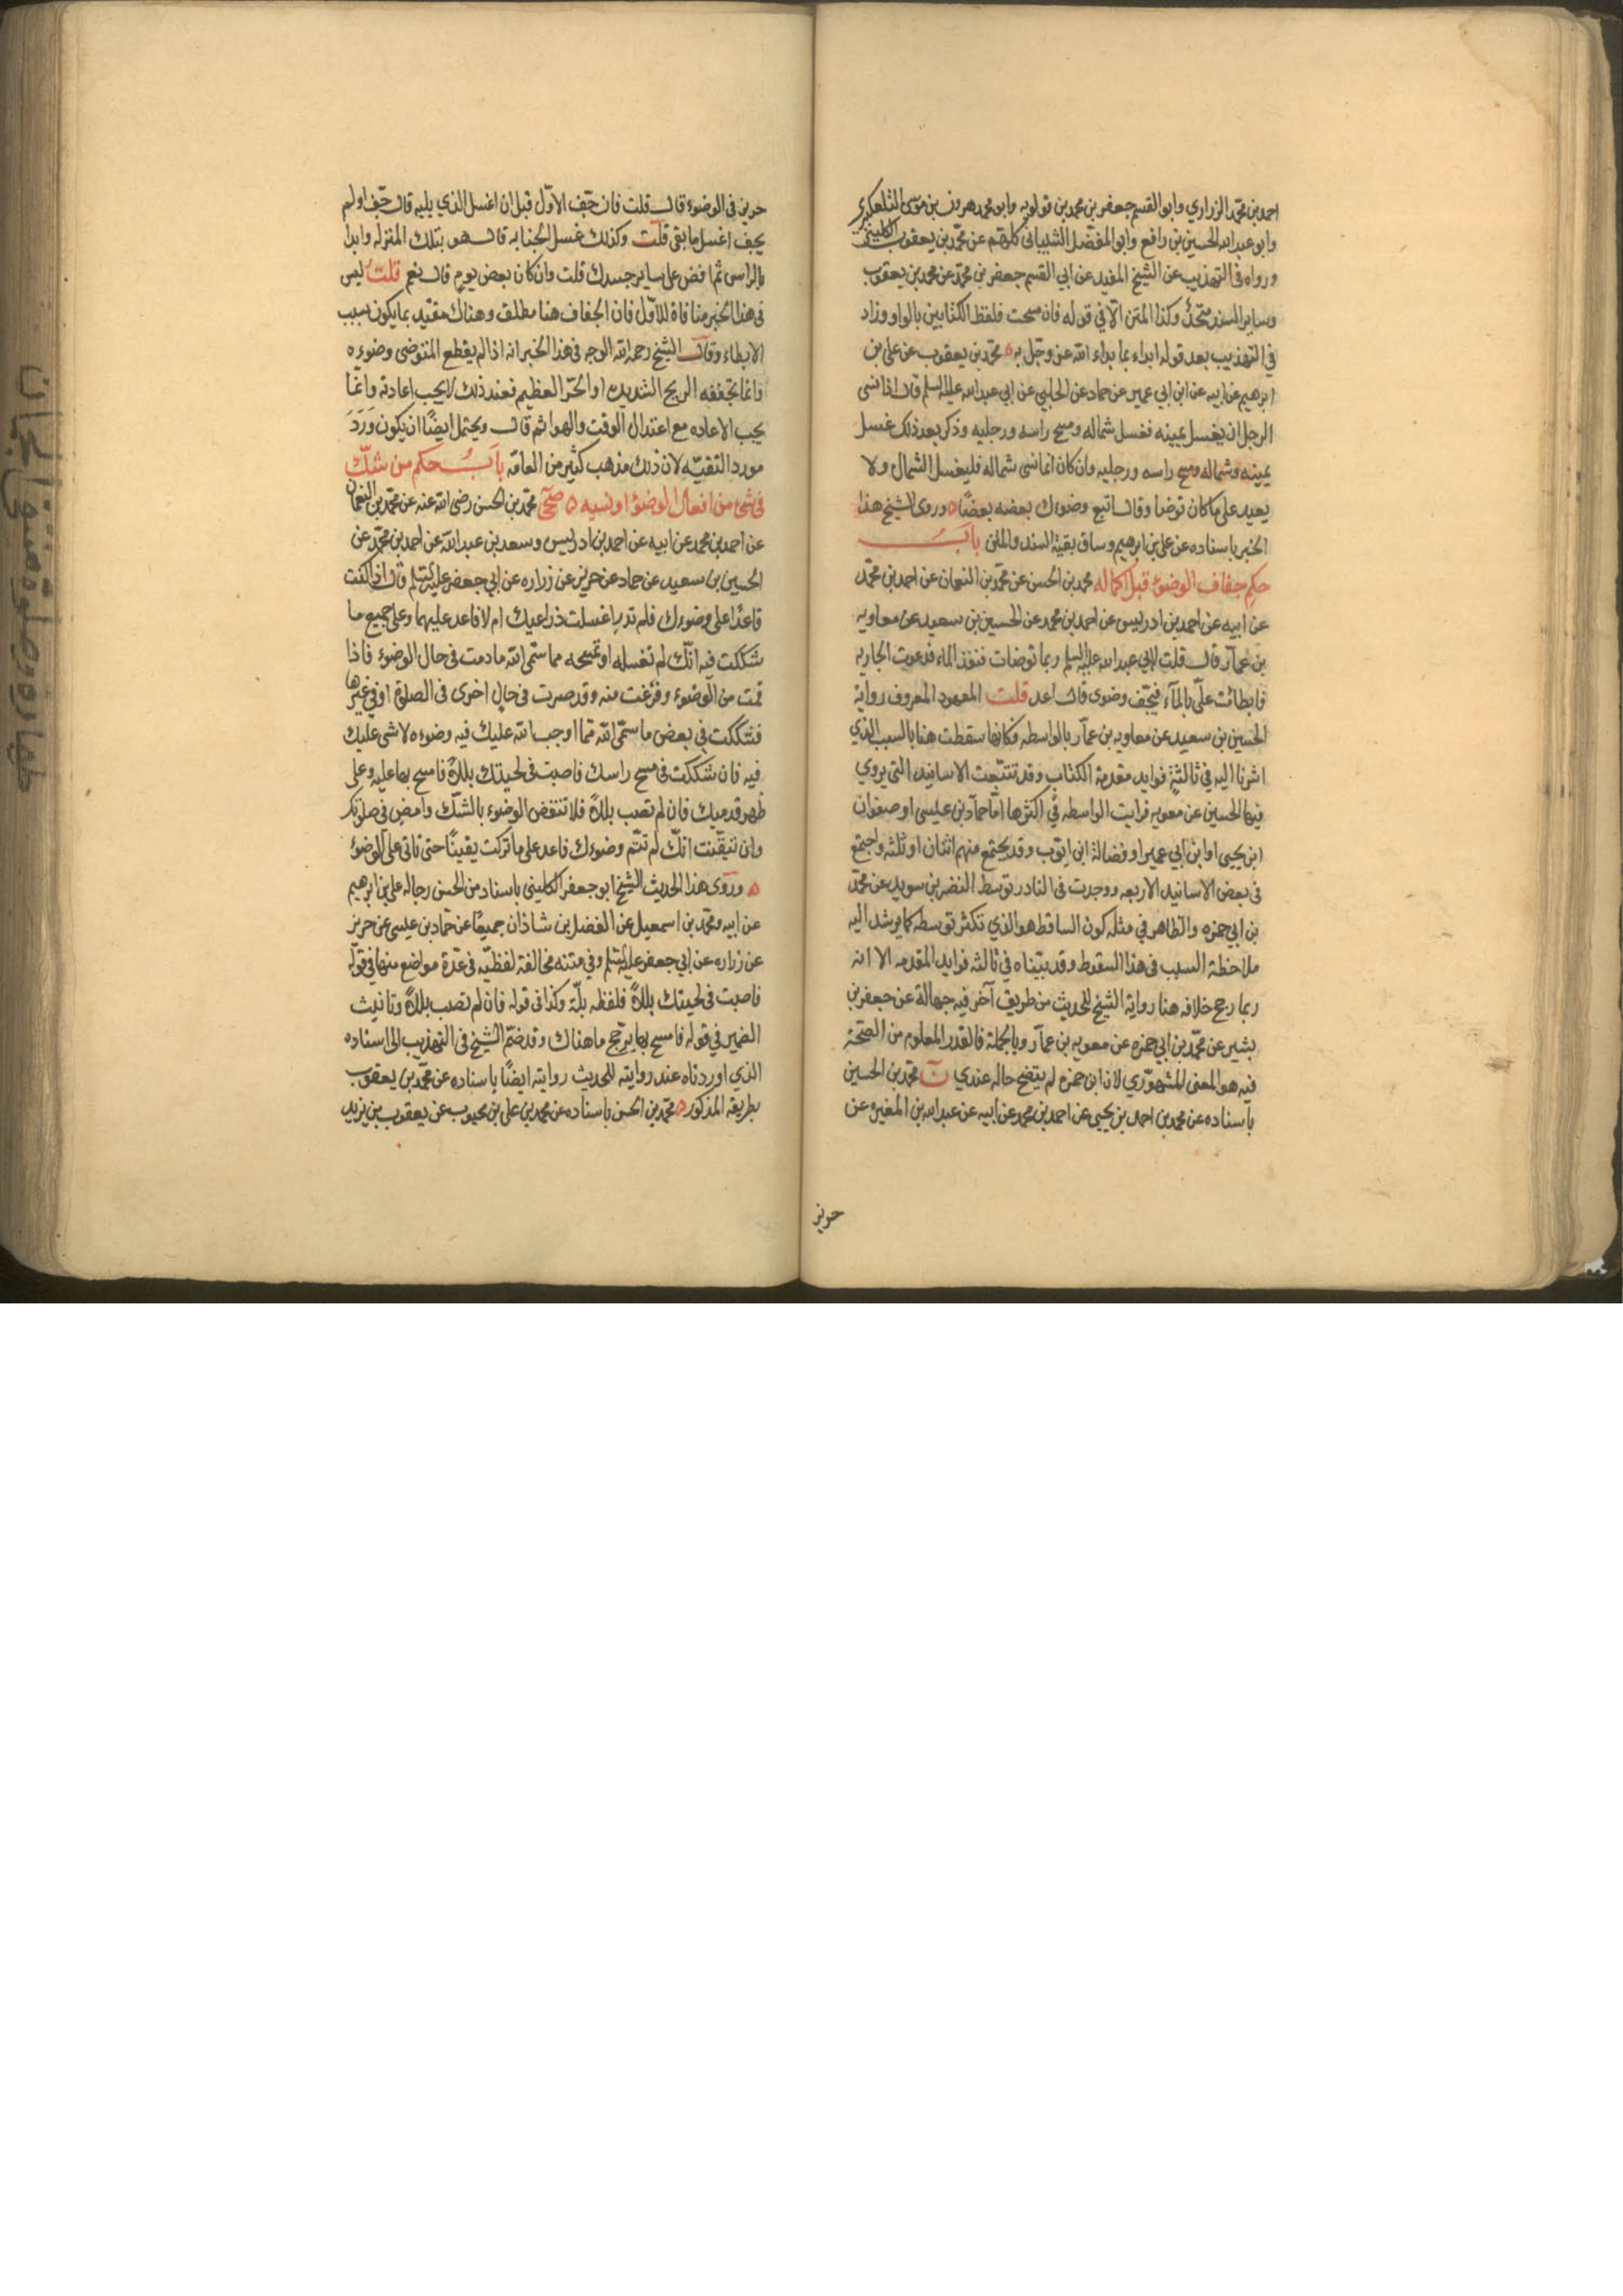 احمد بن محمد الزراري وابو القسم جعفر بن محمد بن قولويه وابو محمد هرون بن موسى التلعكبري
وابو عبد الله الحسين بن رافع وابو المفضل الشيباني كلهم عن محمد بن يعقوب الكليني
ورواه في التهذيب عن الشيخ المفيد عن ابي القسم جعفر بن محمد عن محمد بن يعقوب
وساير السند متحد وكذا المتن الا في قوله فان مسحت فلفظ الكتابين بالواو وزاد
في التهذيب بعد قوله ابداء بما بداء الله عز وجل به محمد بن يعقوب عن علي بن
ابرهيم عن ابيه عن ابن ابي عمير عن حماد عن الحلبي عن ابي عبد الله عليه السلم قال اذا نسى
الرجل ان يغسل يمينه فغسل شماله ومسح راسه ورجليه وذكر بعد ذلك غسل
يمينه وشماله ومسح راسه ورجليه وان كان انما نسى شماله فليغسل الشمال ولا
يعيد على ما كان توضا وقال اتبع وضوءك بعضه بعضًا وروى الشيخ هذا
الخبر باسناده عن علي بن ابرهيم وساق بقية السند والمتن باب
حكم جفاف الوضوء قبل اكماله محمد بن الحسن عن محمد بن النعمان عن احمد بن محمد
عن ابيه عن احمد بن ادريس عن احمد بن محمد عن الحسين بن سعيد عن معاويه
بن عمار قال قلت لابي عبد الله عليه السلم ربما توضات فنفذ الماء فدعوت الجاريه
فابطائت علي بالماء فيجف وضوى قال اعد قلت المعهود المعروف رواية
الحسين بن سعيد عن معاويه بن عمار بالواسطه فكانها سقطت هنا بالسبب الذي
اشرنا اليه في ثالثة فوايد مقدمة الكتاب وقد تتبعت الاسانيد التي يروي
فيها الحسين عن معويه فرايت الواسطه في اكثرها اما حماد بن عيسى او صفوان
ابن يحيى او ابن ابي عمير او فضالة ابن ايوب وقد يجتمع منهم اثنان او ثلثه واجتمع
في بعض الاسانيد الاربعه ووجدت في النادر توسط النضر بن سويد عن محمد
بن ابي حمزه والظاهر في مثله كون الساقط هو الذي تكثر توسطه كما يرشد اليه
ملاحظة السبب في هذا السقوط وقد بيناه في ثالثه فوايد المقدمه الا انه
ربما رجح خلافه هنا رواية الشيخ للحديث من طريق آخر فيه جهالة عن جعفر بن
بشير عن محمد بن ابي حمزه عن معويه بن عمار وبالجملة فالقدر المعلوم من الصحة
فيه هو المعنى المشهوري لان ابن حمزه لم يتضح حاله عندي ن محمد بن الحسين
باسناده عن محمد بن احمد بن يحيى عن احمد بن محمد عن ابيه عن عبد الله بن المغيره عن
حريز
حريز في الوضوء قال قلت فان جف الاول قبل ان اغسل الذي يليه قال جف او لم
يجف اغسل ما بقي قلت وكذلك غسل الجنابه قال هو بتلك المنزله وابدا
بالراس ثم افض على ساير جسدك قلت وان كان بعض يوم قال نعم قلت ليس
في هذا الخبر منافاة للاول فان الجفاف هنا مطلق وهناك مقيد بما يكون بسبب
الابطاء وقال الشيخ رحمه الله الوجه في هذا الخبر انه اذا لم يقطع المتوضى وضوءه
وانما تجففه الريح الشديده او الحر العظيم فعند ذلك لا يجب اعادته وانما
يجب الاعاده مع اعتدال الوقت والهوا ثم قال ويحتمل ايضًا ان يكون وَرَدَ
مورد التقيه لان ذلك مذهب كثير من العامه باب حكم من شك
في شئ من افعال الوضوء او نسيه صحى محمد بن الحسن رضى الله عنه عن محمد بن النعمان
عن احمد بن محمد عن ابيه عن احمد بن ادريس وسعد بن عبد الله عن احمد بن محمد عن
الحسين بن سعيد عن حماد عن حريز عن زراره عن ابي جعفر عليه السلم قال اذا كنت
قاعدًا على وضوءك فلم تدر اغسلت ذراعيك ام لا فاعد عليهما وعلى جميع ما
شككت فيه انك لم تغسله او تمسحه مما سمى الله ما دمت في حال الوضوء فاذا
قمت من الوضوء وفرغت منه وقد صرت في حال اخرى في الصلوة او في غيرها
فشككت في بعض ما سمى الله مما اوجب الله عليك فيه وضوءه لا شى عليك
فيه فان شككت في مسح راسك فاصبت في لحيتك بللاً فامسح بها عليه وعلى
ظهر قدميك فان لم تصب بللاً فلا تنقض الوضوء بالشك وامض في صلوتك
وان تيقنت انك لم تتم وضوءك فاعد على ما تركت يقينًا حتى تاتي على الوضوء
وروى هذا الحديث الشيخ ابو جعفر الكليني باسناد من الحسن رجاله علي بن ابرهيم
عن ابيه ومحمد بن اسمعيل عن الفضل بن شاذان جميعًا عن حماد بن عيسى عن حريز
عن زراره عن ابي جعفر عليه السلم وفي متنه مخالفة لفظيه في عدة مواضع منها في قوله
فاصبت في لحيتك بللاً فلفظه بلّة وكذا في قوله فان لم تصب بللاً وتانيث
الضمير في قوله فامسح بها يرجح ما هناك وقد ضم الشيخ في التهذيب الى اسناده
الذي اوردناه عند روايته للحديث روايته ايضًا باسناده عن محمد بن يعقوب
بطريقه المذكور محمد بن الحسن باسناده عن محمد بن علي بن محبوب عن يعقوب بن يزيد